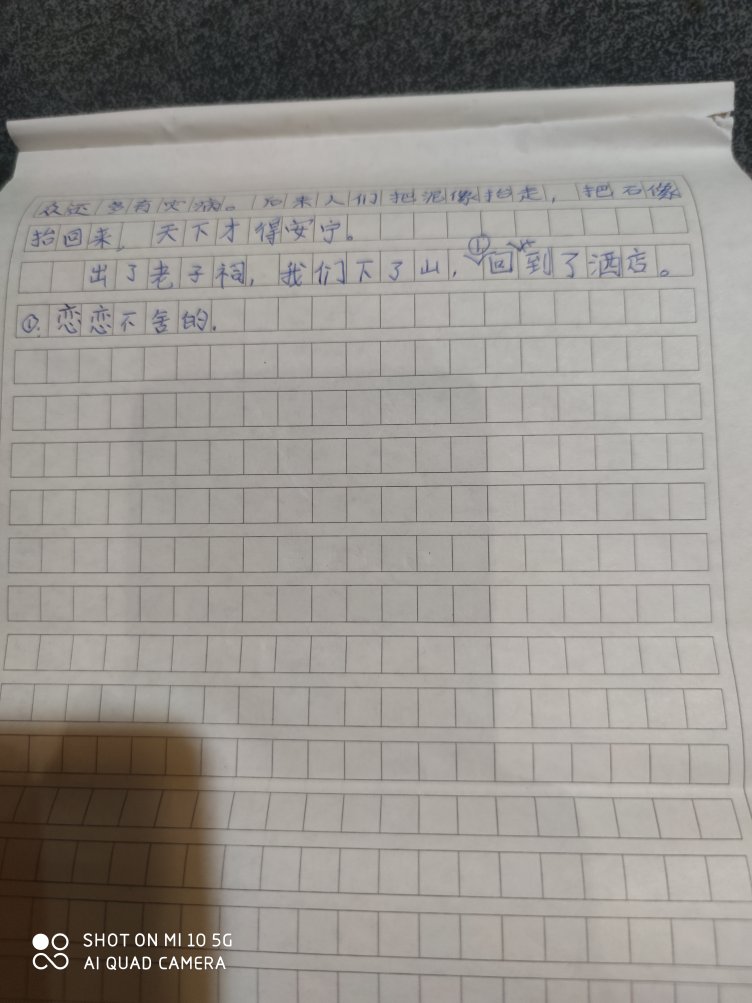 多有灾病。后来人们把泥像抬走，把石像
抬回来，天下才得安宁。
出了老子祠，我们下了山，①回到了酒店。
①恋恋不舍的.
SHOT ON MI 10 5G
AI QUAD CAMERA